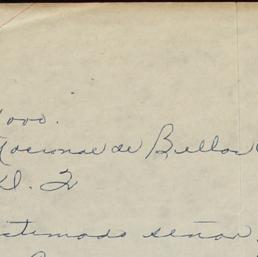 ovo.
Nacional de Bellas
D. F
stimado señor